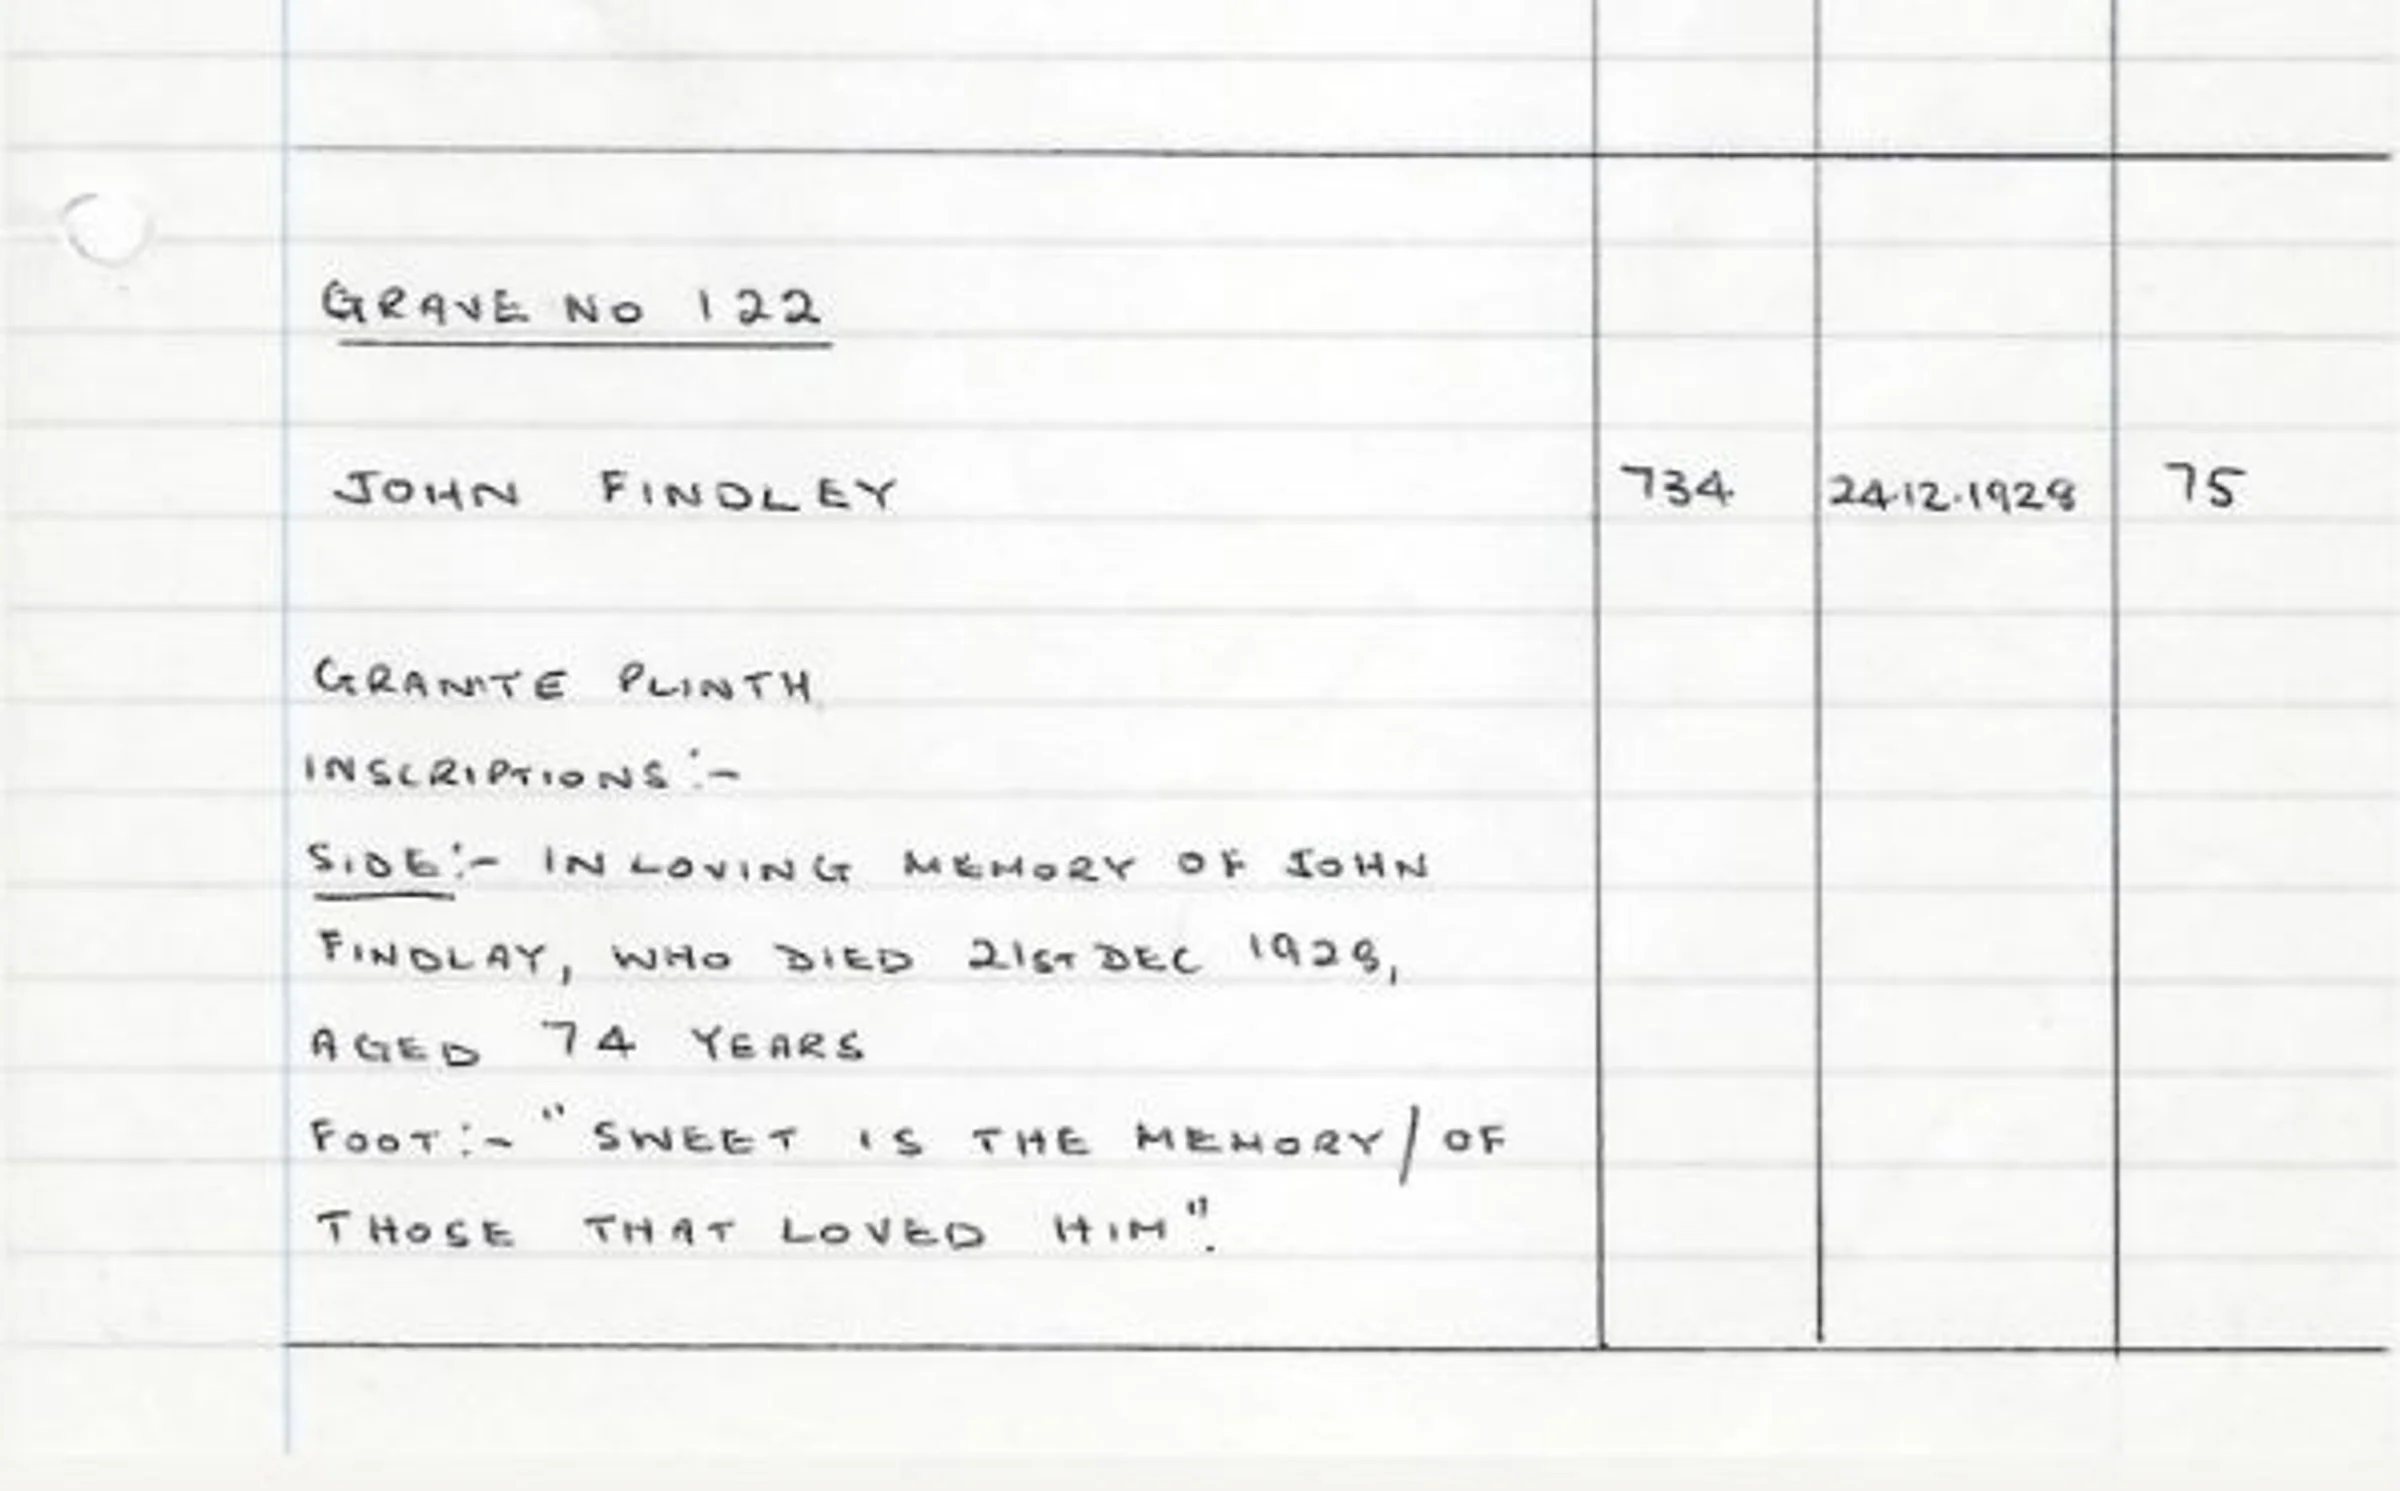 GRAVE No 122
JOHN FINDLEY 734 24.12.1928 75
GRANITE PLINTH
INSCRIPTIONS:-
SIDE:- IN LOVING MEMORY OF JOHN
FINDLAY, WHO DIED 21ST DEC 1928,
AGED 74 YEARS
FOOT:- "SWEET IS THE MEMORY / OF
THOSE THAT LOVED HIM".